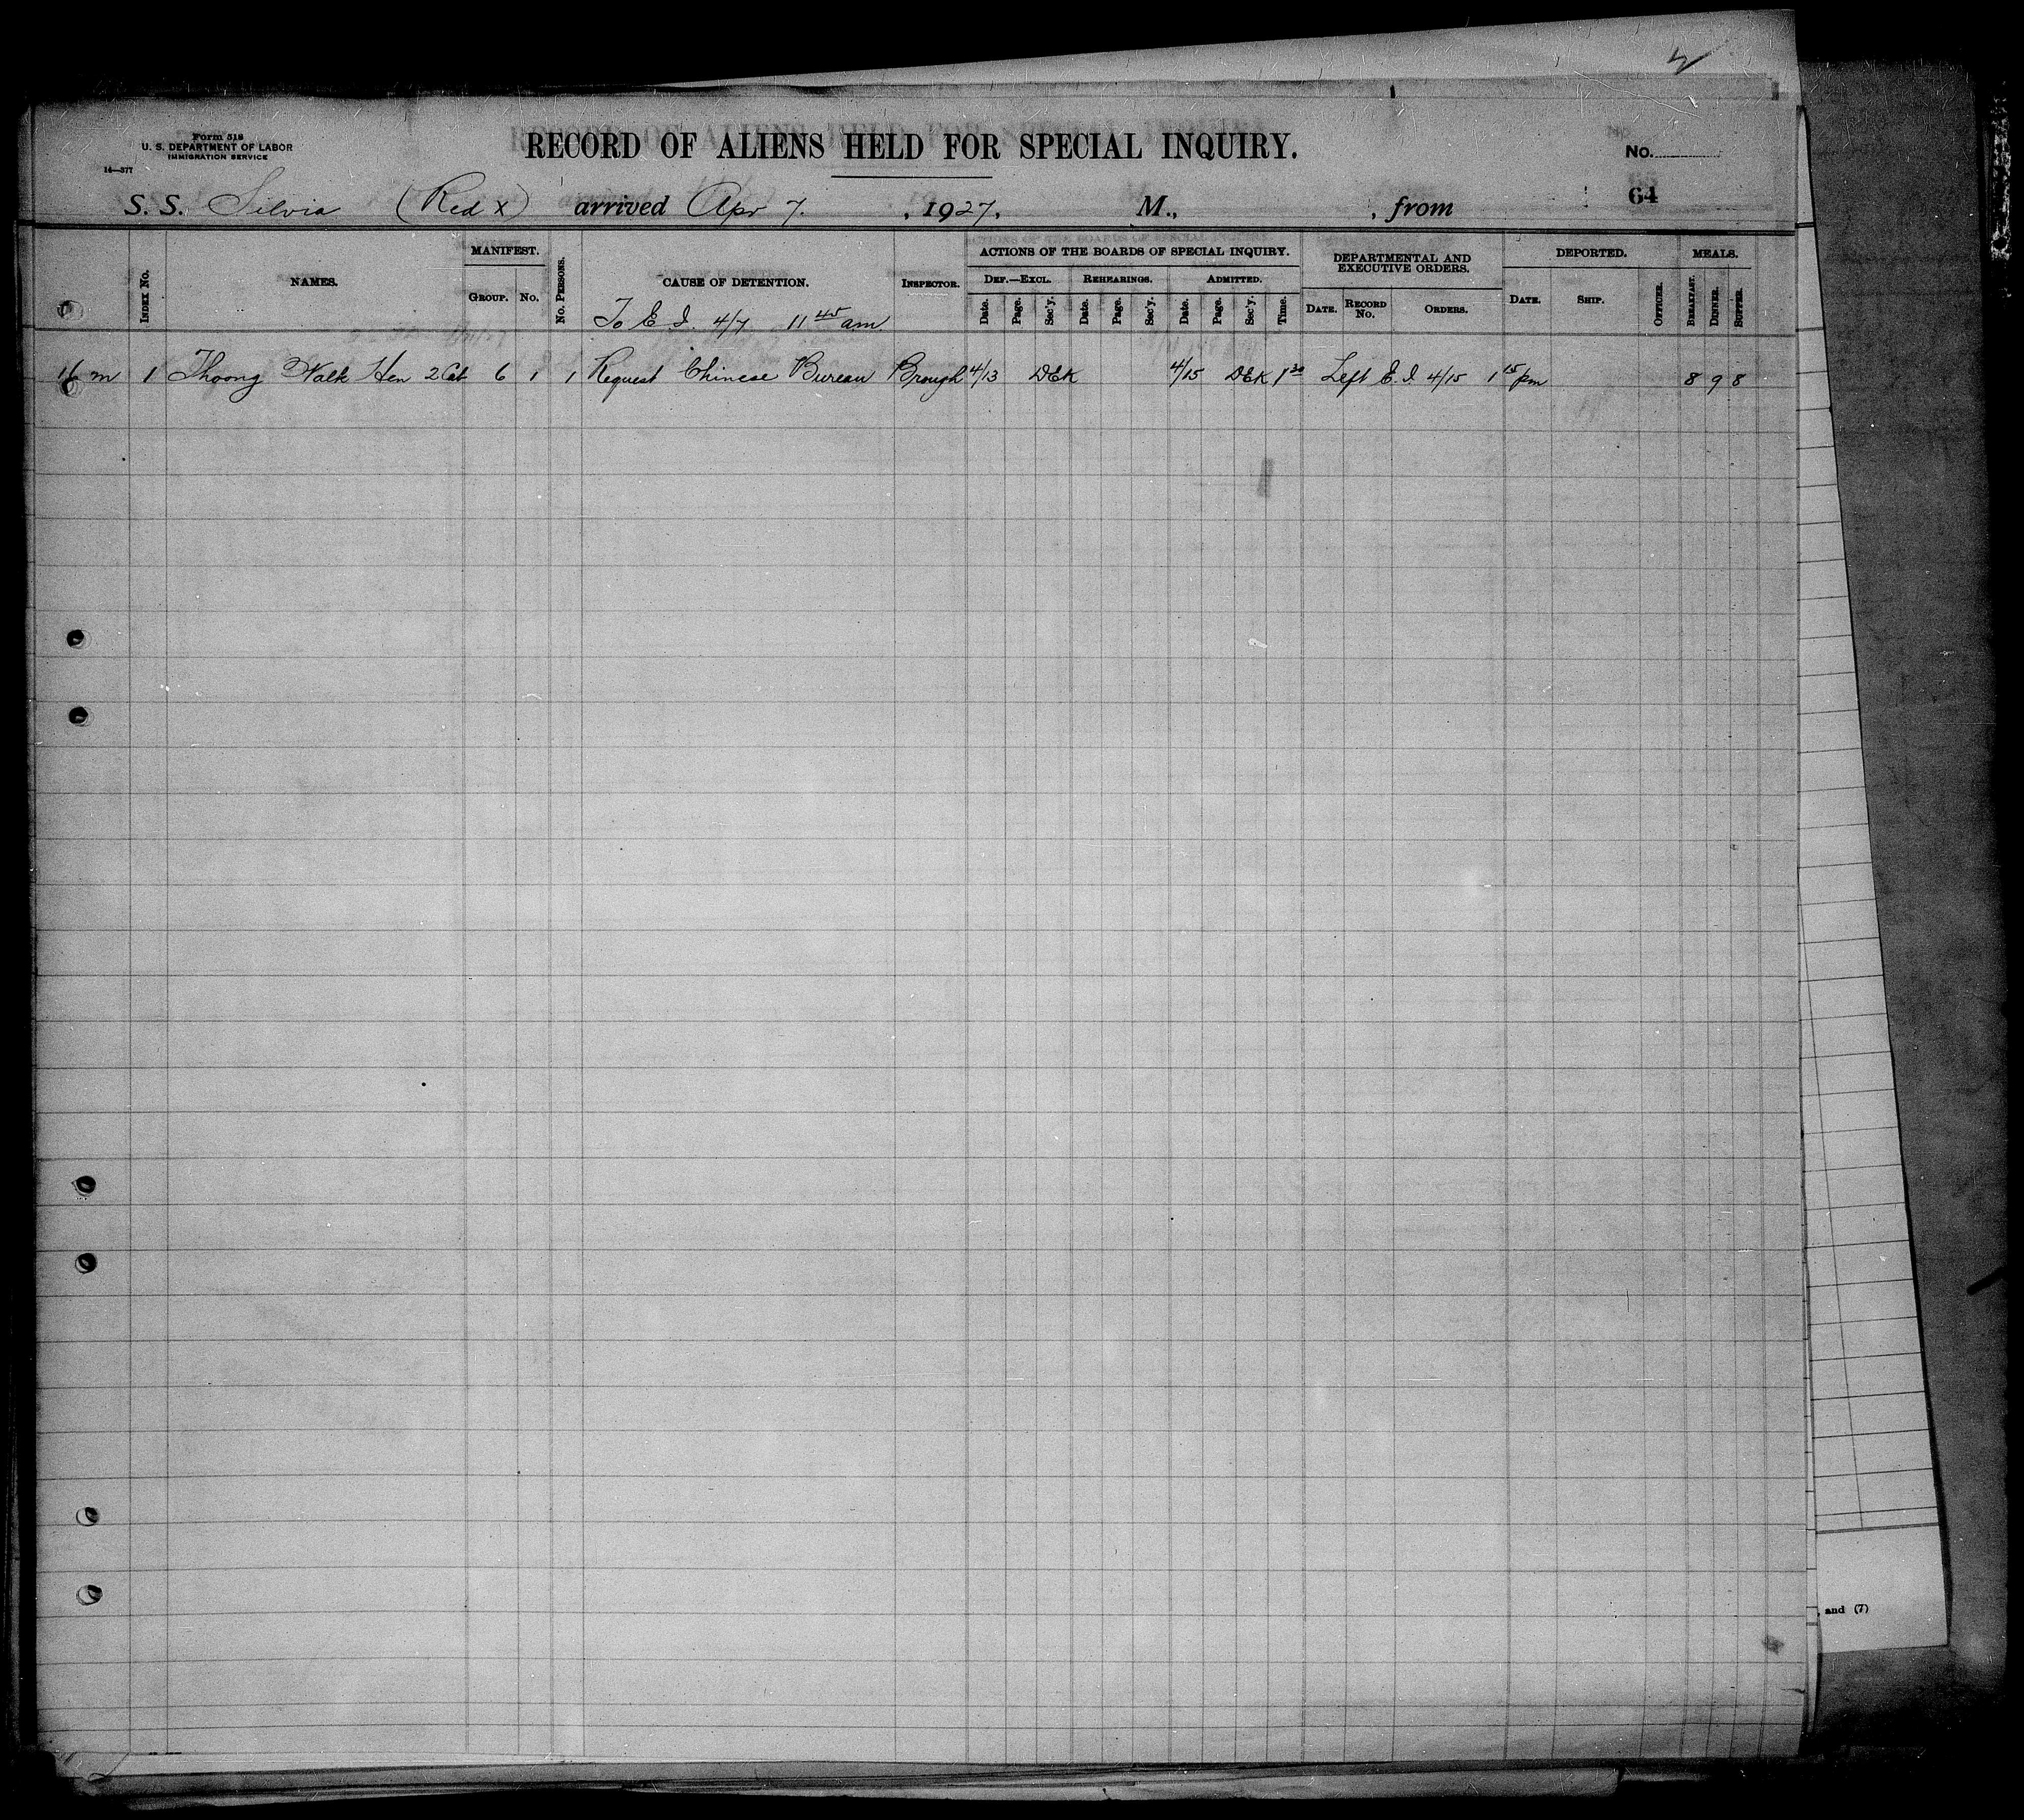 Form 518
U. S. DEPARTMENT OF LABOR
IMMIGRATION SERVICE
14—577
RECORD OF ALIENS HELD FOR SPECIAL INQUIRY.
No.
64
S. S. Silvia (Red X) arrived Apr 7. , 1927, M., , from
INDEX No.
NAMES.
MANIFEST.
GROUP. No.
No. PERSONS.
CAUSE OF DETENTION.
To E I. 4/7 11 45 am
INSPECTOR.
ACTIONS OF THE BOARDS OF SPECIAL INQUIRY.
DEF.—EXCL. REHEARINGS. ADMITTED.
Date. Page. Sec'y. Date. Page. Sec'y. Date. Page. Sec'y. Time.
DEPARTMENTAL AND
EXECUTIVE ORDERS.
DATE. RECORD No. ORDERS.
DEPORTED.
DATE. SHIP. OFFICER.
MEALS.
BREAKFAST. DINNER. SUPPER.
16 m 1 Thoong Walk Hen 2 Cab 6 1 1 Request Chinese Bureau Brough 4/13 DEK 4/15 DEK 1 20 Left E. I. 4/15 1 15 pm 8 9 8
and (7)